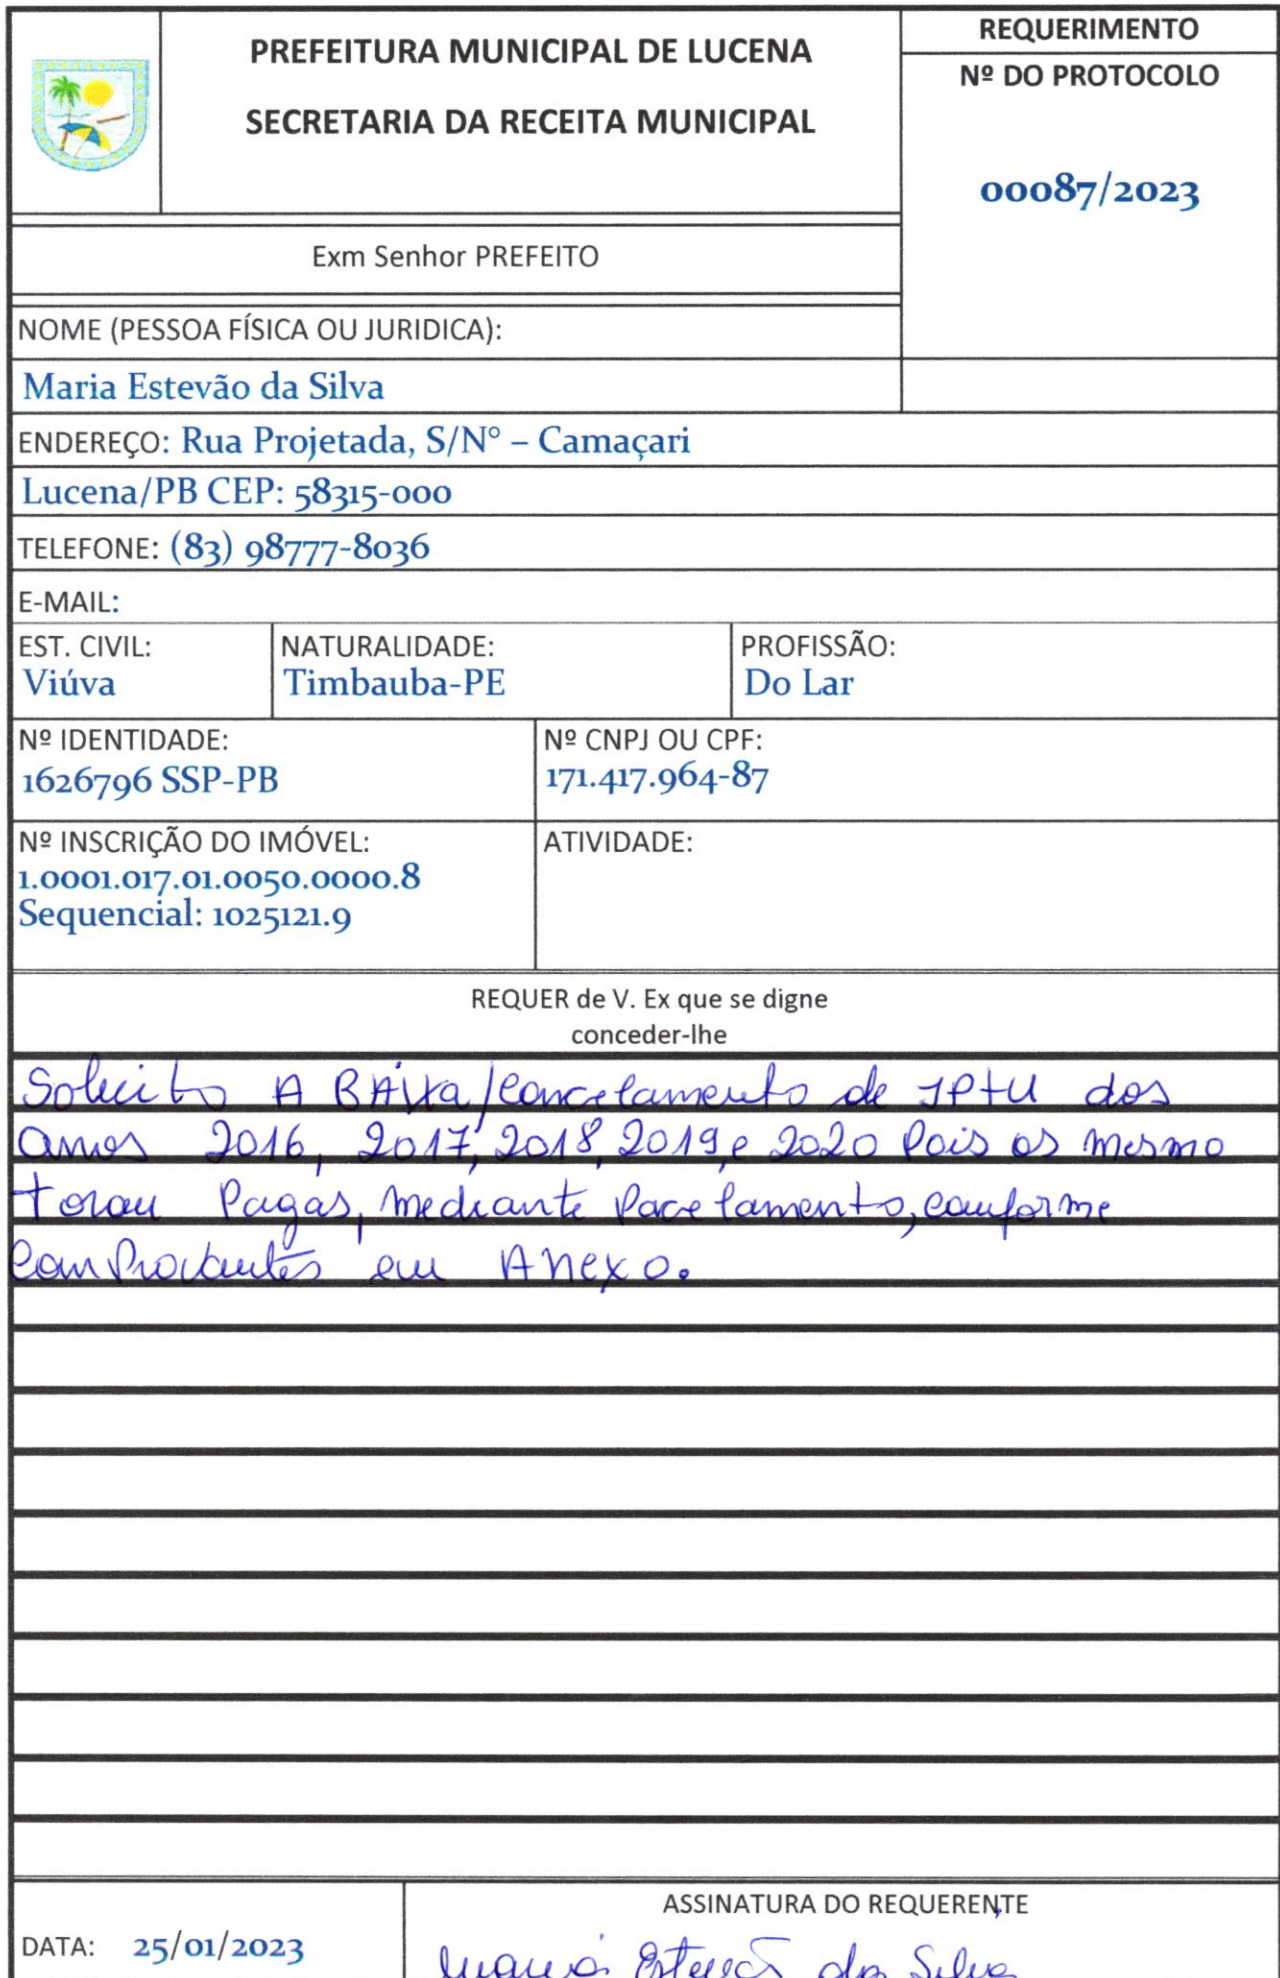 PREFEITURA MUNICIPAL DE LUCENA
SECRETARIA DA RECEITA MUNICIPAL
REQUERIMENTO
Nº DO PROTOCOLO
00087/2023
Exm Senhor PREFEITO
NOME (PESSOA FÍSICA OU JURIDICA):
Maria Estevão da Silva
ENDEREÇO: Rua Projetada, S/N° – Camaçari
Lucena/PB CEP: 58315-000
TELEFONE: (83) 98777-8036
E-MAIL:
EST. CIVIL:
Viúva
NATURALIDADE:
Timbauba-PE
PROFISSÃO:
Do Lar
Nº IDENTIDADE:
1626796 SSP-PB
Nº CNPJ OU CPF:
171.417.964-87
Nº INSCRIÇÃO DO IMÓVEL:
1.0001.017.01.0050.0000.8
Sequencial: 1025121.9
ATIVIDADE:
REQUER de V. Ex que se digne
conceder-lhe
Solicito A BAixa/Cancelamento de IPtU dos
Anos 2016, 2017, 2018, 2019, e 2020 Pois os mesmo
foram Pagas, mediante Parcelamento, conforme
ComProvantes em Anexo.
DATA: 25/01/2023
ASSINATURA DO REQUERENTE
Maria Estevão da Silva